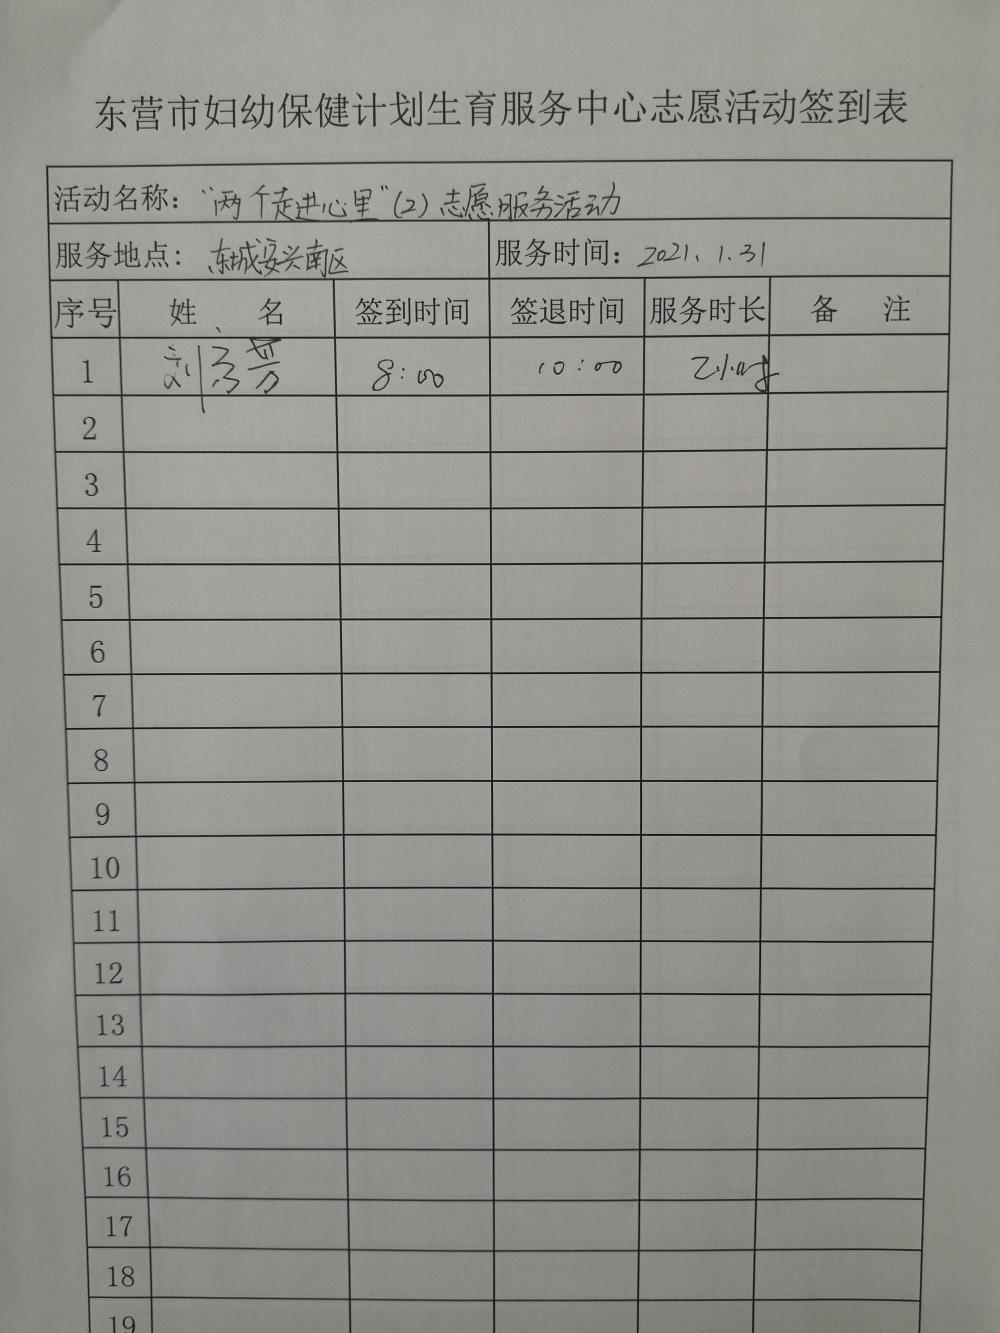 东营市妇幼保健计划生育服务中心志愿活动签到表
活动名称：“两个走进心里”(2) 志愿服务活动
服务地点：东城安兴南区 服务时间：2021.1.31
序号 姓 名 签到时间 签退时间 服务时长 备 注
1 刘芳 8:00 10:00 2小时
2
3
4
5
6
7
8
9
10
11
12
13
14
15
16
17
18
19